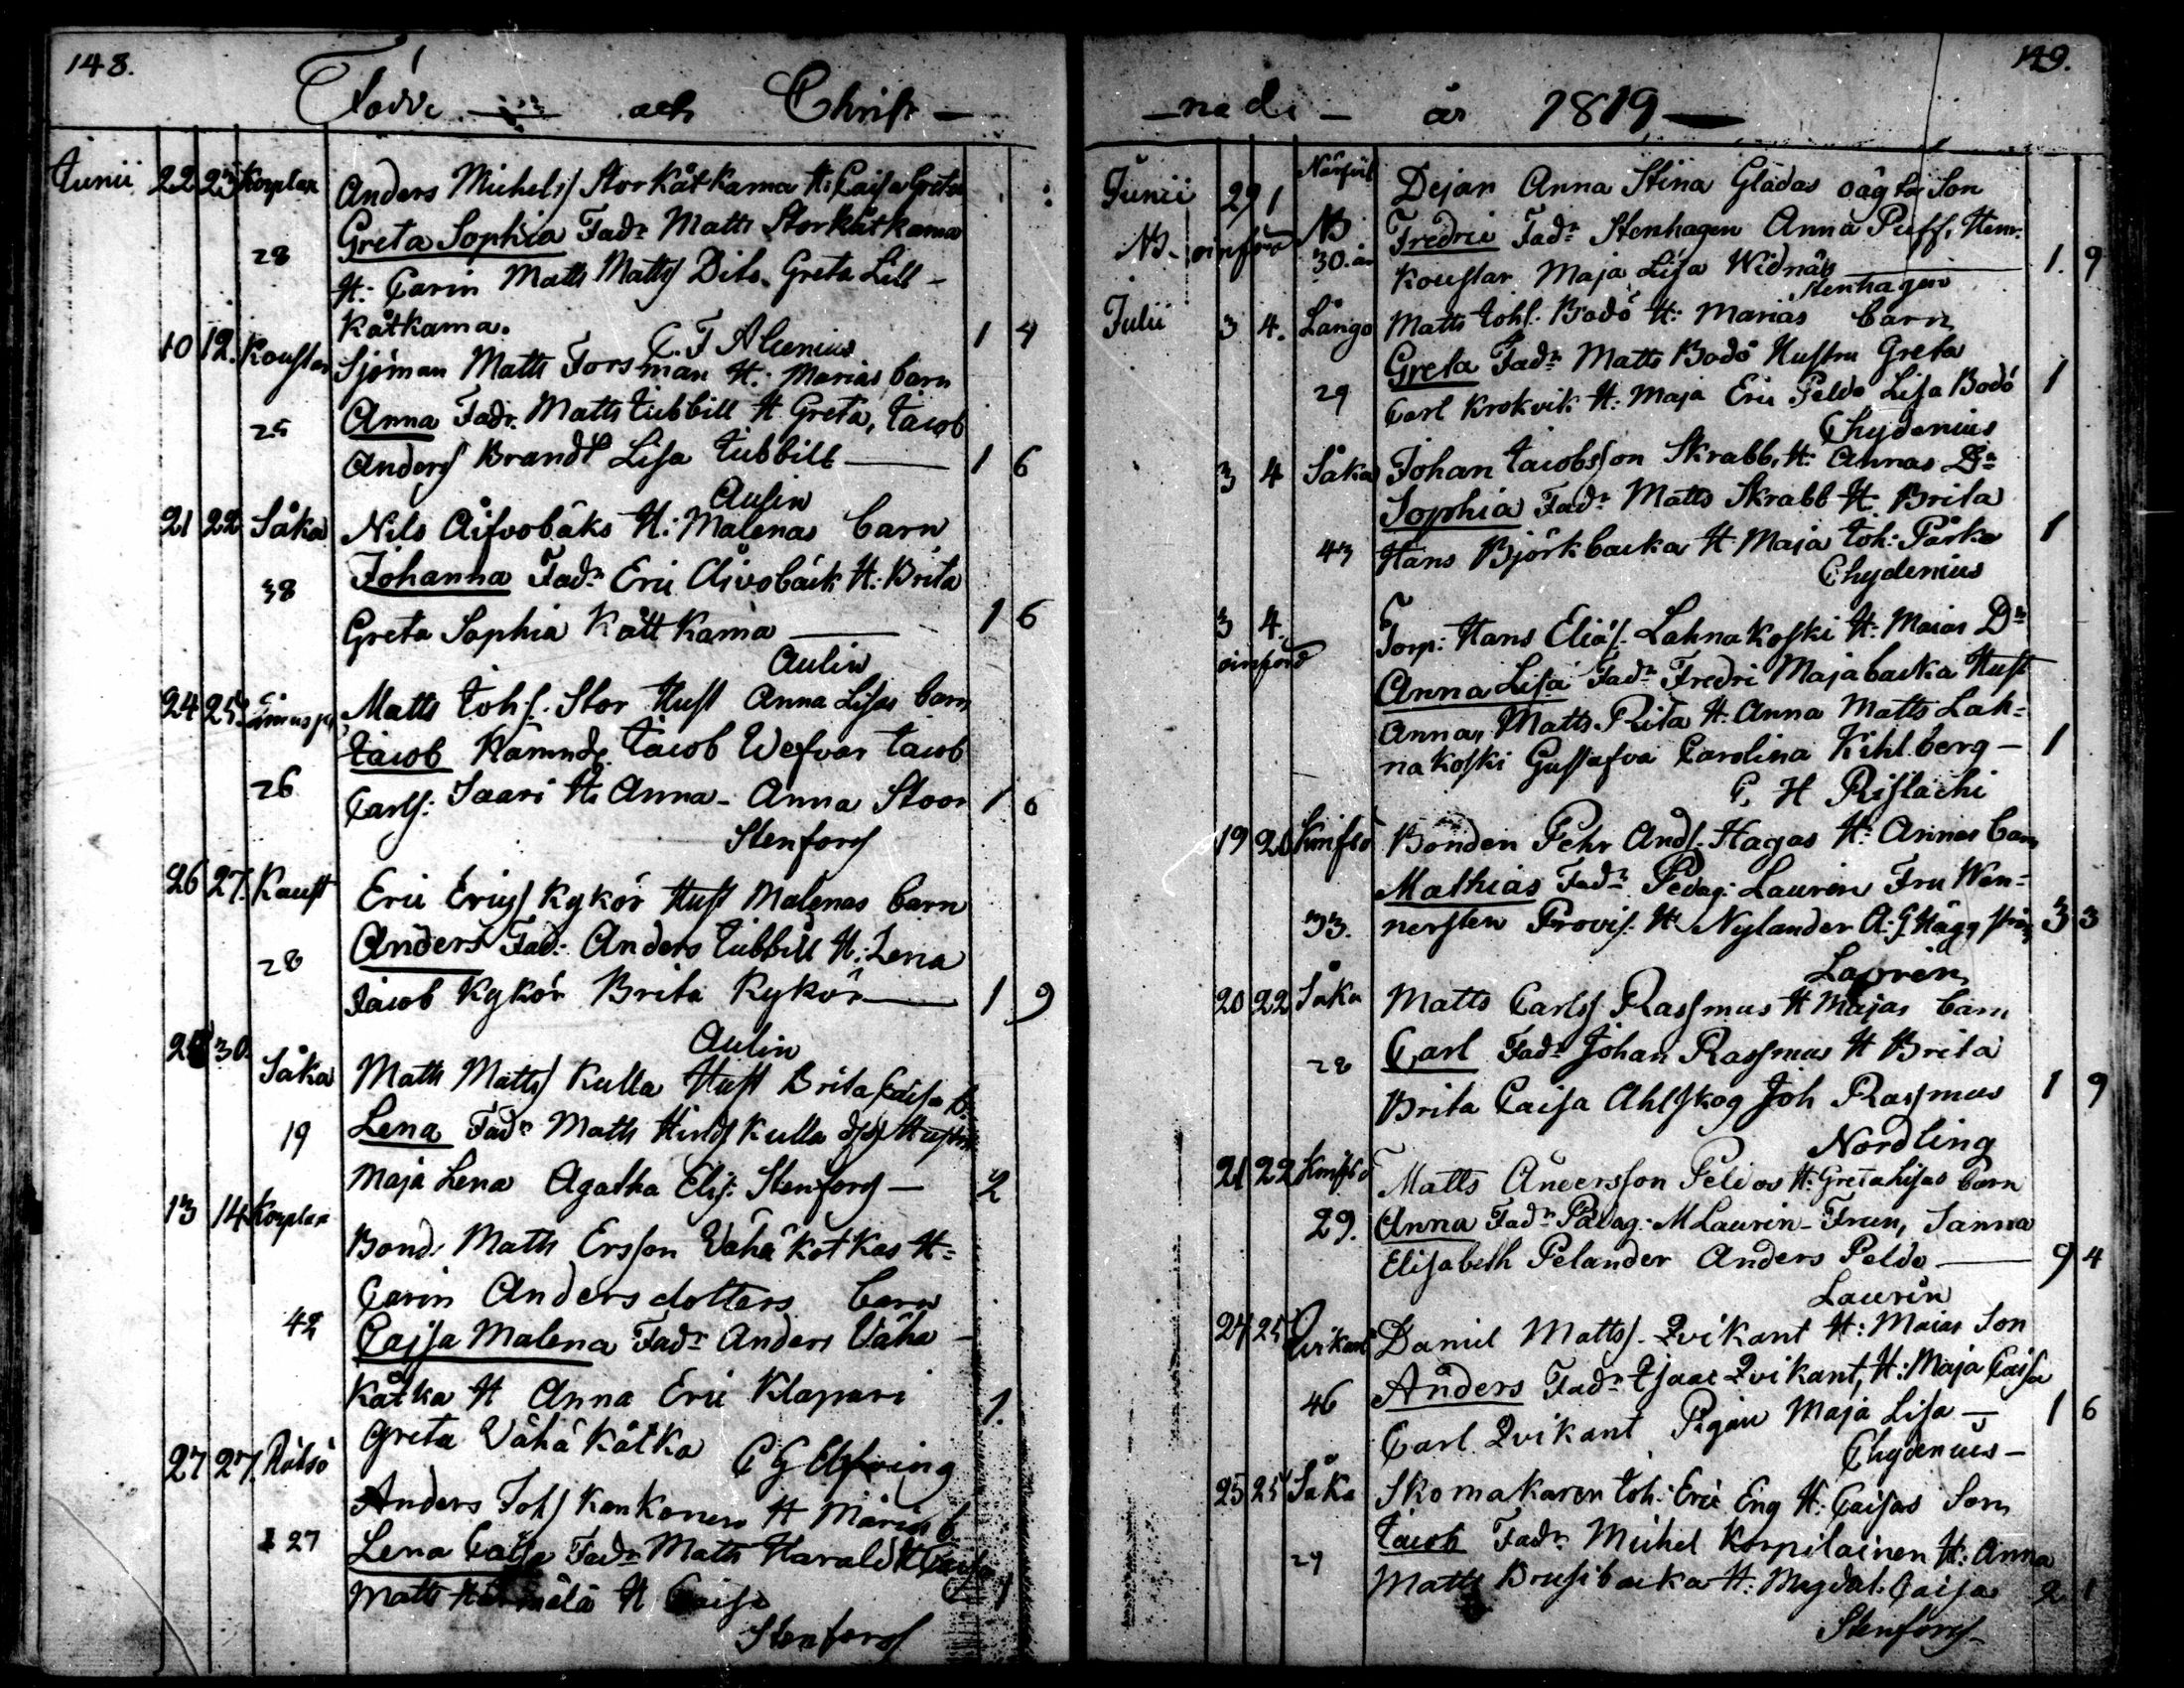 148.
Födde och Christ-
Junii 22 23 Korplax Anders Michels Storkåtkama H: Caisa Greta
Greta Sophia Fadr Matts Storkåtkama
28 H: Carin Matts Matts Dito. Greta Lill-
kåtkama. 1 4
C. F. Alcenius
10 12. Koustar Sjöman Matts Forsman H: Marias barn
25 Anna Fadr. Matts Jubbill H Greta, Jacob
Anders Brandt Lisa Jubbill 1 6
Aulin
21 22 Såka Nils Åifvobäks H: Malenas barn
38 Johanna Fadr Eric Åivobäck H: Brita
Greta Sophia Kåttkama 1 6
Aulin
24 25 Matts Johs. Stor Hust Anna Lisas barn
Jacob Nämnd. Jacob Wefvar Jacob
26 Carls: Saari H: Anna - Anna Stoor 1 6
Stenfors
26 27. Kaust Eric Erics Kykör Hust Malenas barn
28 Anders Fad: Anders Jubbill H: Lena
Jacob Kykör Brita Kykör 1 9
Aulin
30. Såka Matts Matts Kulla Hust Brita Caisa b.
19 Lena Fadr Matts Hinds Kulla Hustru
Maja Lena Agatha Elis: Stenfors - 2
13 14 Korplax Bond: Matts Ersson Vähäkötkas H:
Carin Andersdotters barn
42 Caisa Malena Fadr Anders Vähä-
kåtka H Anna Eric Klapuri 1.
Greta Vähäkåtka
C G Elfving
27 27. Råtsö Anders Johs Konkonen H Marias b.
27 Lena Caisa Fadr Matts Harald H Caisa
Matts H Caisa 1
Stenfors
149.
-nade- år 1819
Junii 29 1 Dejan Anna Stina Gladas oägta Son
NB. NB Fredric Fadr Stenhagen Anna Puss, Hem.
30. år Koustar Maja Lisa Widnäs 1. 9
Stenhagen
Julii 3 4. Långö Matts Johs. Bodö H: Marias barn
Greta Fadr Matts Bodö Hustru Greta
29 Carl Krokvik H: Maja Eric Peldo Lisa Bodö 1
Chydenius
3 4 Såka Johan Jacobsson Skrabb, H: Annas Dr
Sophia Fadr Matts Skrabb H Brita
43 Hans Björkbacka H: Maja Joh: Pårko 1
Chydenius
3 4. Torp: Hans Eliäs. Lahnakoski H: Maias Dr
Anna Lisa Fadr Fredri Majabacka Hust
Anna, Matts Rita H: Anna Matts Lah-
nakoski Gustafva Carolina Kihlberg - 1
G. H Rislachi
19 20 Knifsö Bonden Pehr Ands. Hagas H: Annas barn
Mathias Fadr Pedag: Laurin Fru Wen-
33. nersten Provis. H Nylander A: G Häggström 3 3
Laurin
20 22 Såka Matts Carls Rassmus H Majas barn
28 Carl Fadr Johan Rassmus H Brita
Brita Caisa Ahlskog Joh Rassmus 1 9
Nordling
21 22 Knifsö Matts Andersson Peldos H: Greta Lisas barn
29. Anna Fadr Pädag: M Laurin - Frun, Sanna
Elisabeth Pelander Anders Peldo 9 4
Laurin
24 25 Qvikant Daniel Matts. Qvikant H: Maias Son
46 Anders Fadr Isaac Qvikant, H: Maja Caisa
Carl Qvikant Pigan Maja Lisa - 1 6
Chydenius-
25 25 Såka Skomakaren Joh: Eric Eng H: Caisas Son
29 Jacob Fadr Michel Korpilainen H: Anna
Matts Brusibacka H: Magdal: Caisa 2 1
Stenfors